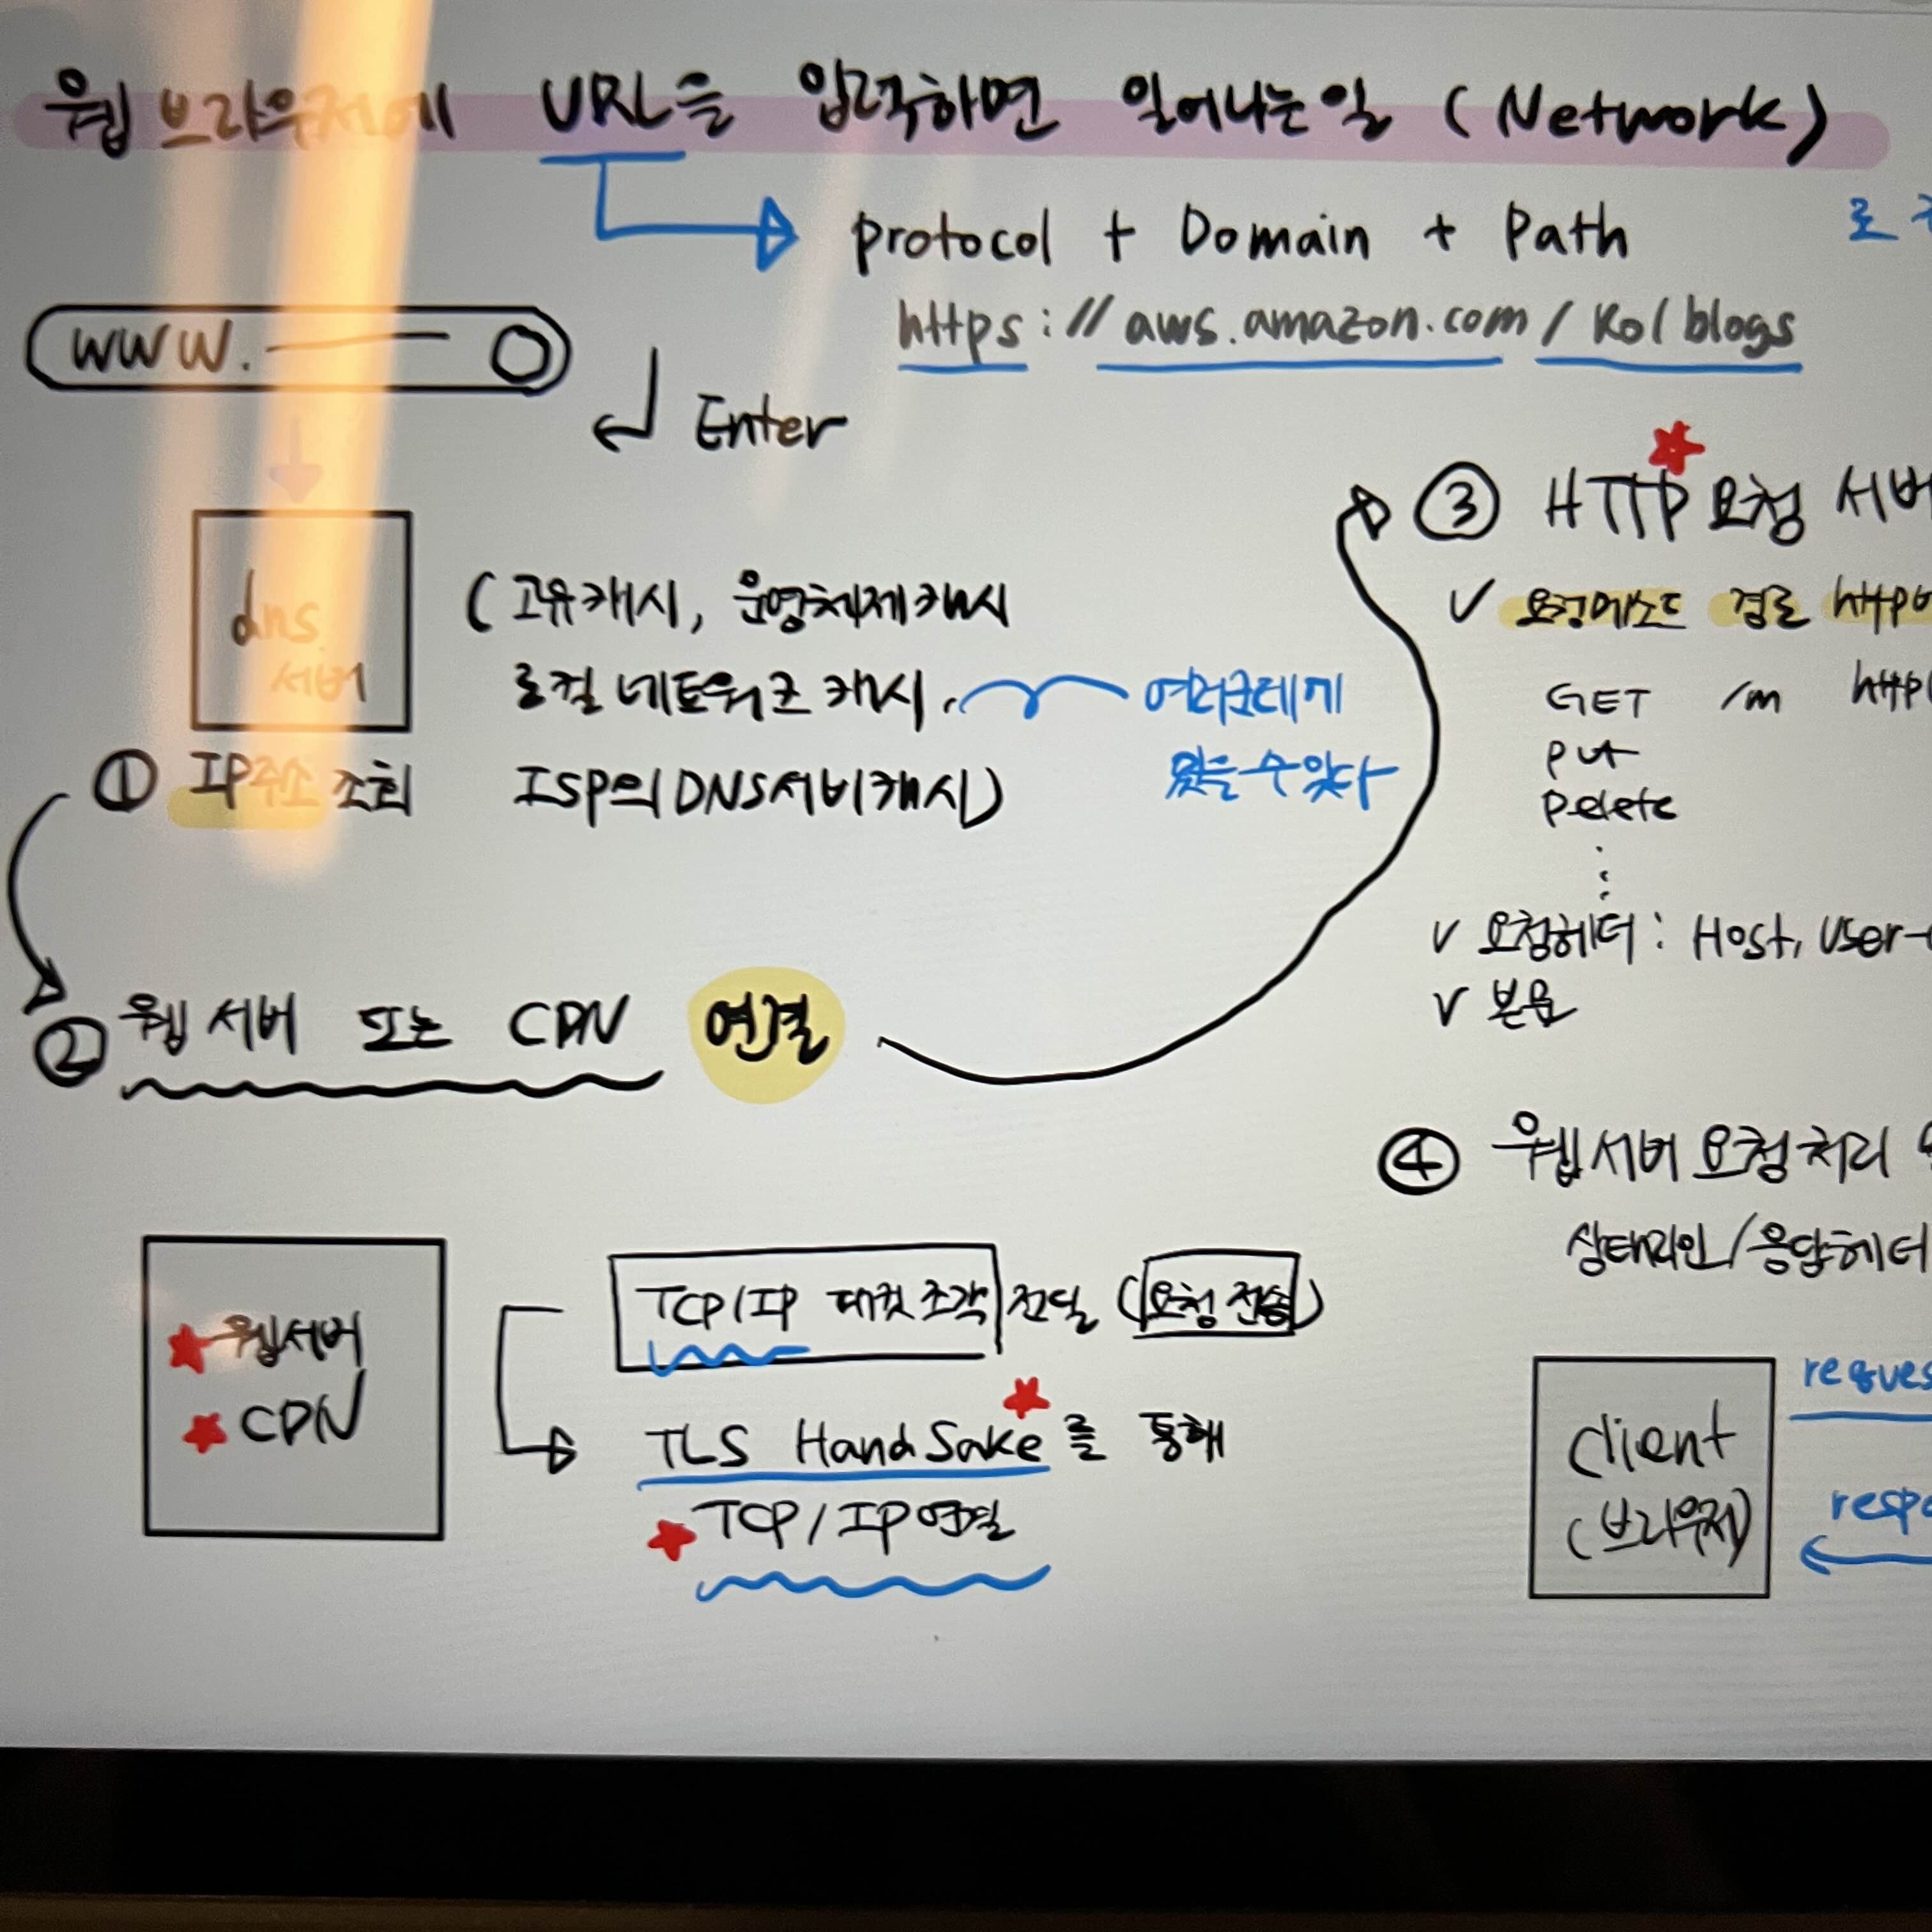 웹 브라우저에 URL을 입력하면 일어나는일 (Network)
protocol + Domain + Path
https://aws.amazon.com/Ko/blogs
www.
Enter
dns
서버
(고유캐시, 운영체제캐시
로컬 네트워크 캐시,
ISP의 DNS서버캐시)
여러군데에
있을수있다
① IP주소 조회
② 웹서버 또는 CDN 연결
웹서버
CDN
TCP/IP 패킷조각 전달 (요청 전송)
TLS HandSake를 통해
TCP/IP연결
③ HTTP 요청 서버
✓ 요청메소드 경로
GET /m http
put
Delete
⋮
✓ 요청헤더 : Host, User-
✓ 본문
④ 웹서버 요청처리
상태라인/응답헤더
client
(브라우저)